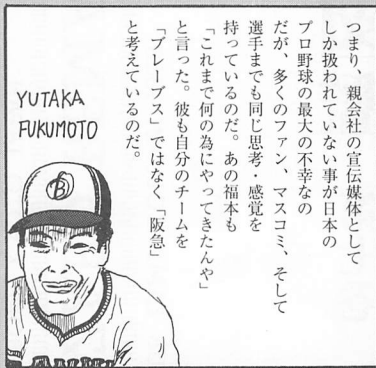 つまり、親会社の宣伝媒体として
しか扱われていない事が日本の
プロ野球の最大の不幸なの
だが、多くのファン、マスコミ、そして
選手までも同じ思考・感覚を
持っているのだ。あの福本も
「これまで何の為にやってきたんや」
と言った。彼も自分のチームを
「ブレーブス」ではなく「阪急」
と考えているのだ。
YUTAKA
FUKUMOTO
B